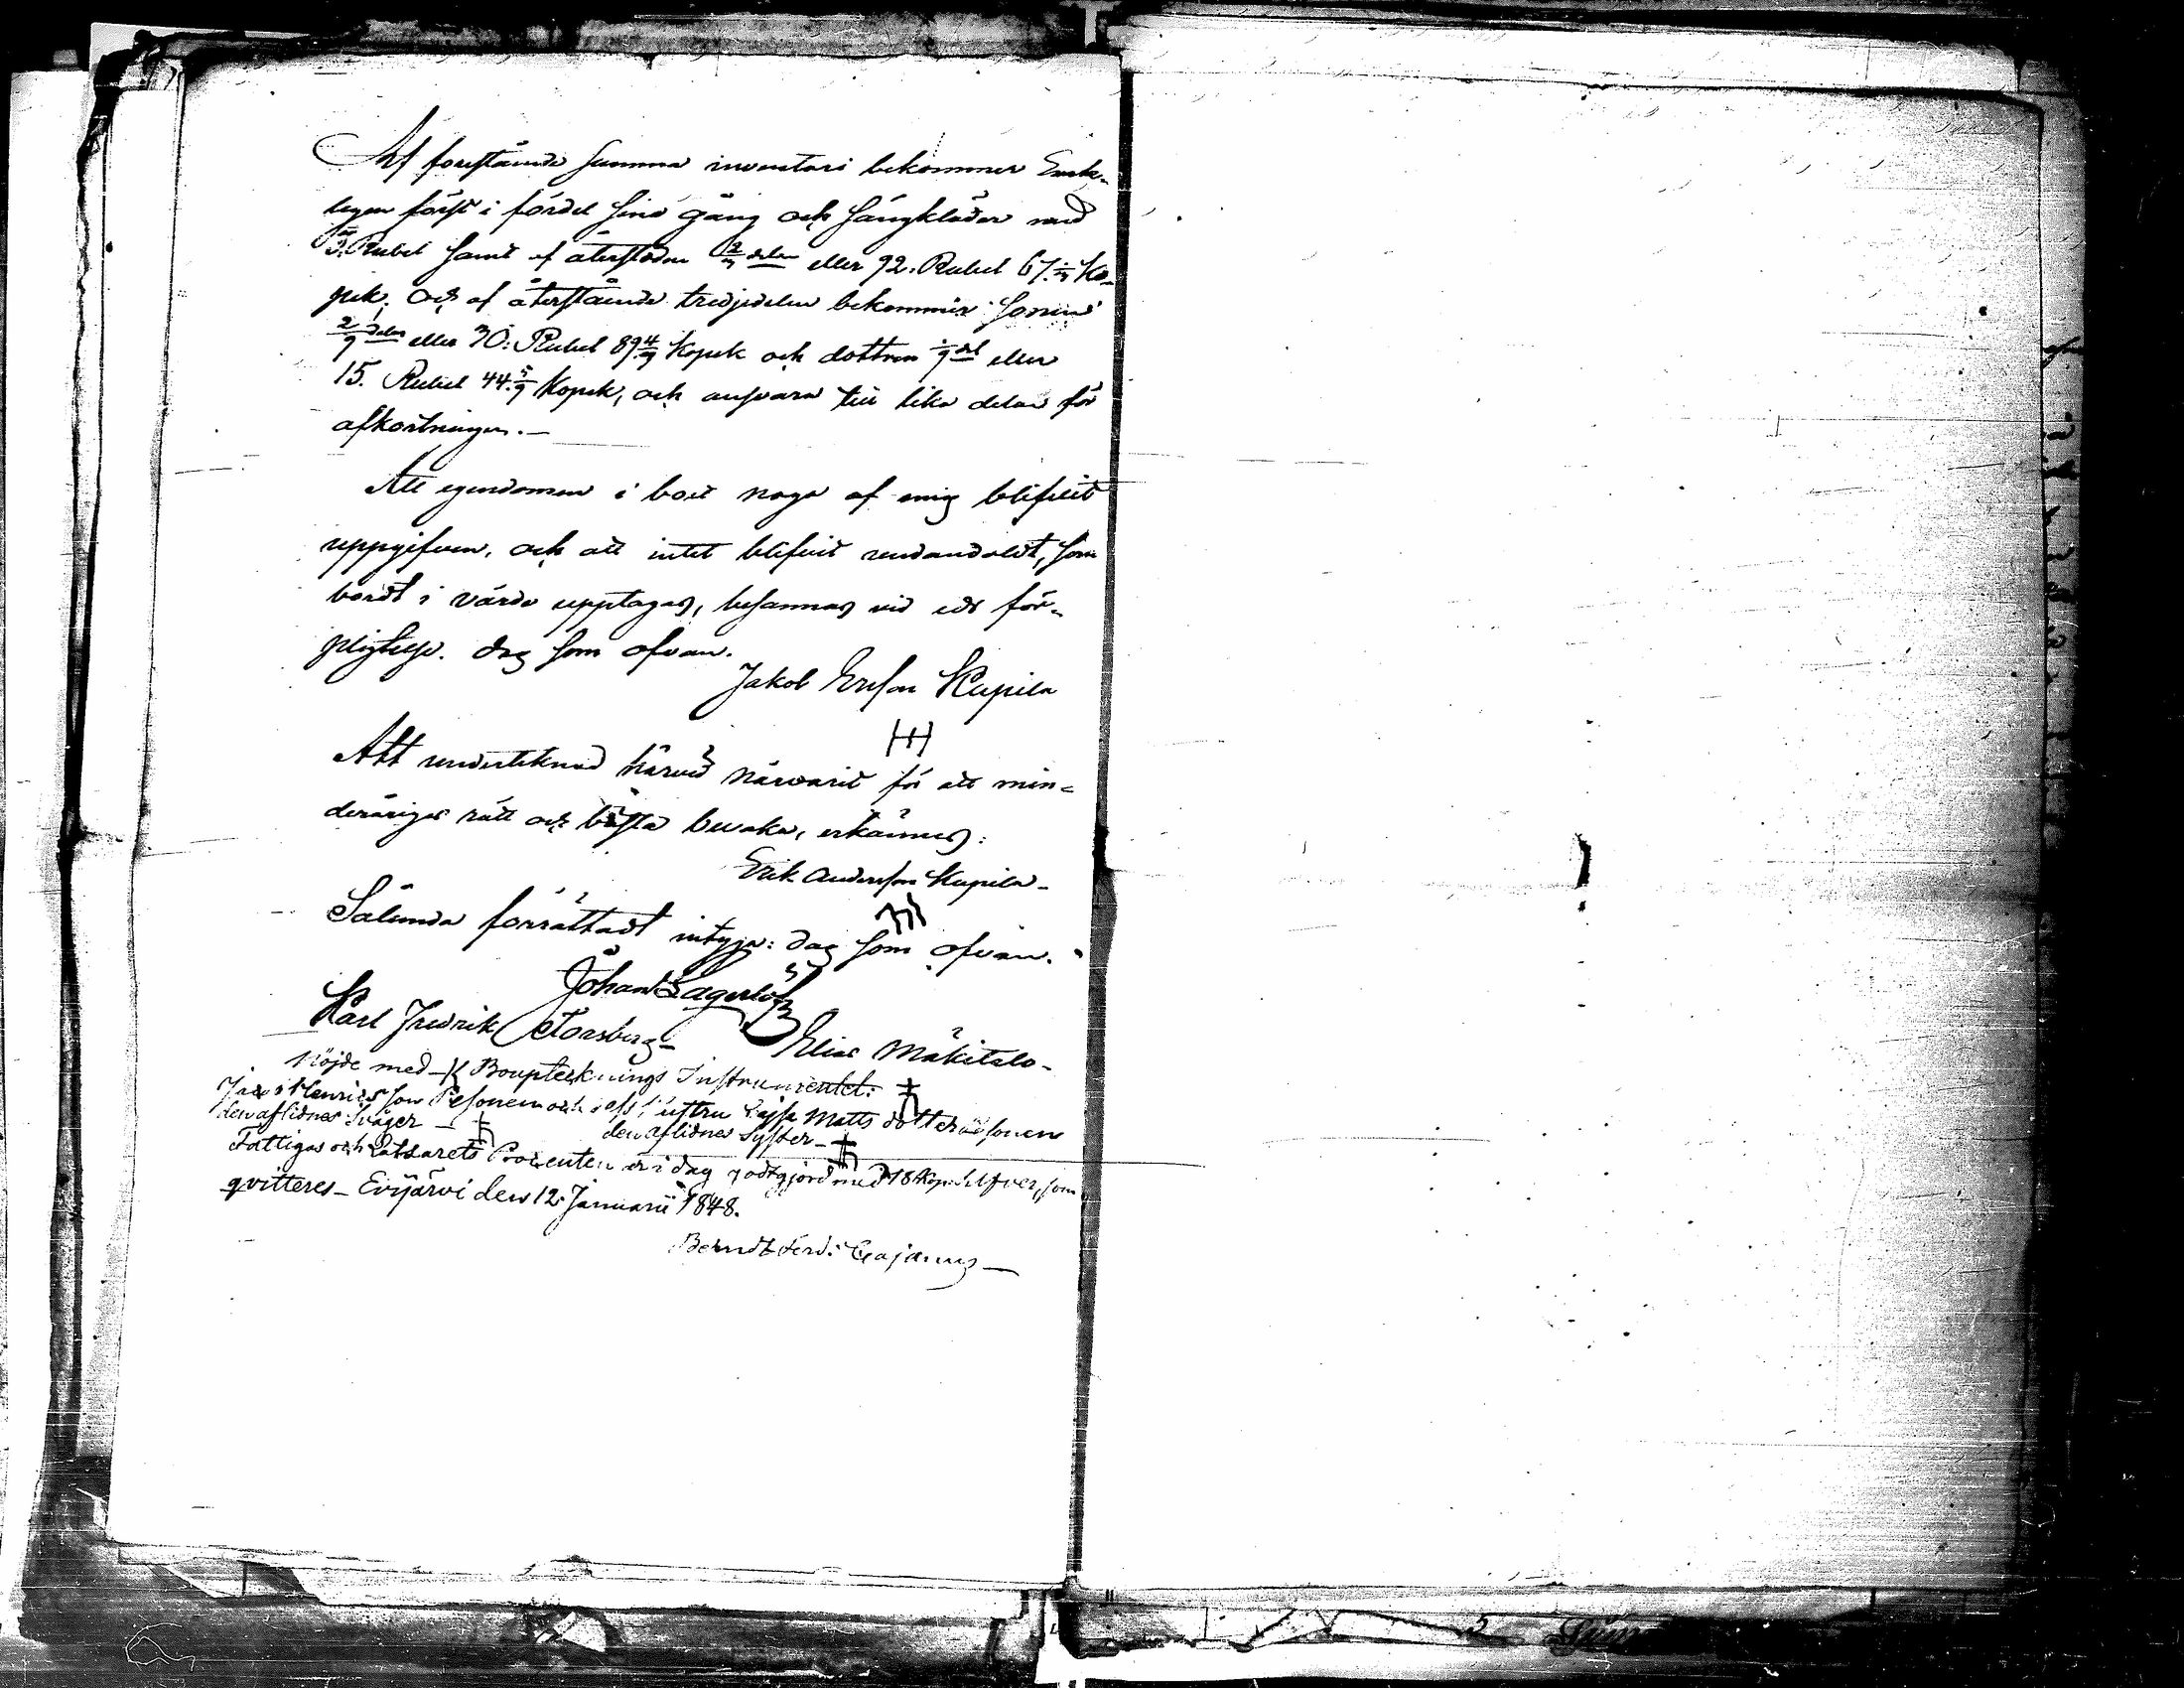 Af forestående summa inventari bekommer Enck-
lingen först i fördel sina gång och sängkläder med
3. Rubel samt af återstoden 2/3 delar eller 92. Rubel 67 1/3 Ko-
pek, och af återstående tredjedelen bekommer sonen
2/9 delar eller 30: Rubel 89 4/9 Kopek och dottren 1/9 del eller
15. Rubel 44. Kopek, och ansvara till lika delar för
afkortningen.-
Att egendomen i boet noga af mig blifvit
uppgifven, och att intet blifvit undandoldt, som
bordt i värde upptagas, besannas vid eds för-
pligtelse. dag som ofvan.
Jakob Ersson Kupila
Att undertecknad härvid närvarit för att min-
derårigas rätt och bästa bevaka, erkännes:
Erik Andersson Kupila-
Sålunda förrättadt intyga: dag som ofvan.
Johan Lagerlöf
Karl Fredrik Forsberg- Elias Mäkitalo-
Nöjde med Bouptecknings Instrumentet:
Henricsson Pesonen och hustru Kajsa Matts dotter Pesonen
den aflidnes Svåger - den aflidnes Syster-
Fattigas och Procenten är i dag godtgjord med 18 Kop. silfver, som
qvitteres- Evijärvi den 12. Januarii 1848.
Berndt Ferd: Cajanus-